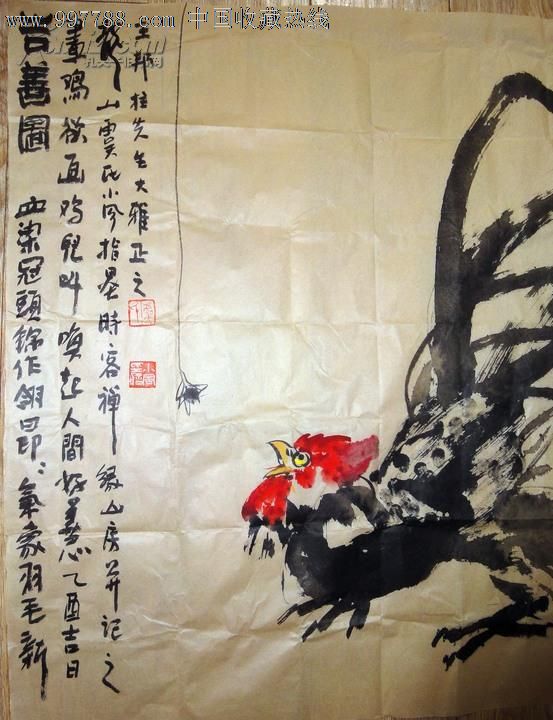 www.997788.com 中国收藏热线
吉善圖 血染冠頭錦作翎昂〻氣象羽毛新
畫鷄欲画鸡兒叫喚起人間好善心乙酉吉日
山 氏小風指墨時客禅緣山房并记之
王邦柱先生大雅正之